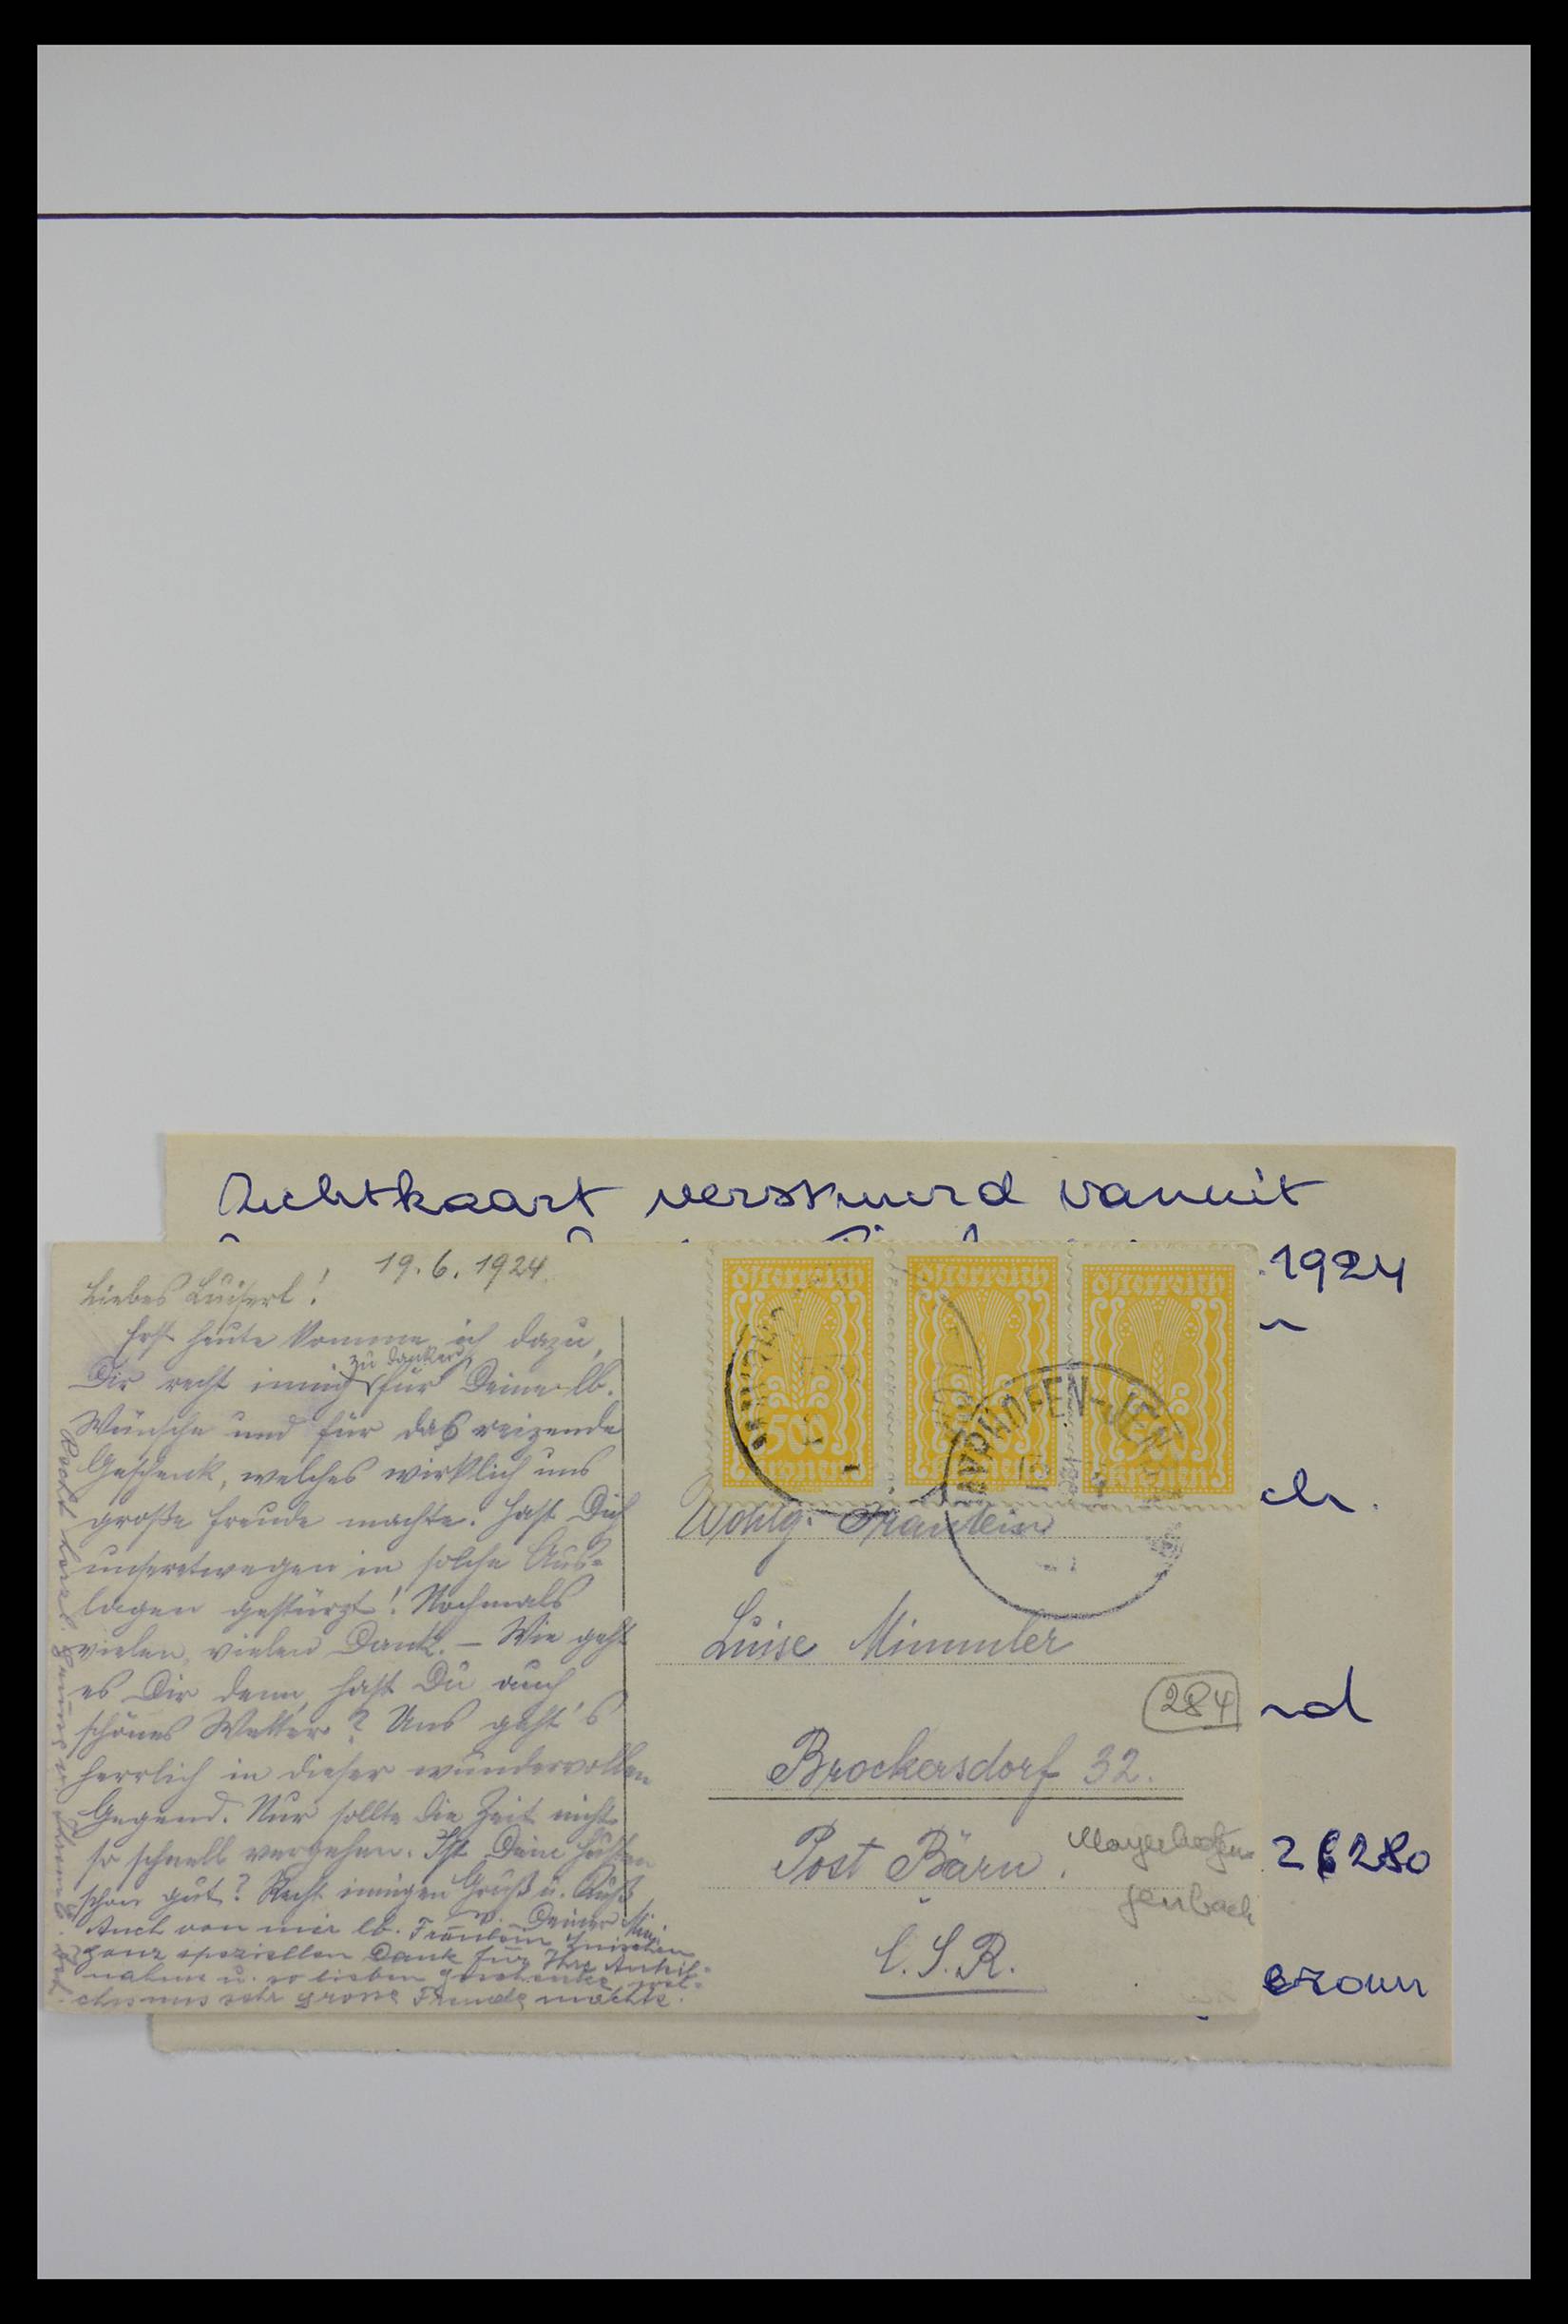 Zichtkaart verstuurd vanuit
1924
ch.
nd
26280
19.6.1924.
Liebes Luiserl!
Erst heute komme ich dazu,
Dir recht innig zu danken für Deine lb.
Wünsche und für das reizende
Geschenk, welches wirklich uns
große Freude machte. Hast Dich
unseretwegen in solche Aus-
lagen gestürzt! Nochmals
vielen, vielen Dank. – Wie geht
es Dir denn, hast Du auch
schönes Wetter? Uns geht's
herrlich in dieser wundervollen
Gegend. Nur sollte die Zeit nicht
so schnell vergehen. Ist Dein Husten
schon gut? Recht innigen Gruß u. Kuß
v. Deiner Mini
Auch von mir lb. Fräulein
ganz speziellen Dank für Ihre
nahme u. so lieben Geschenke, wel-
ches uns sehr grosse Freude machte.
Österreich Österreich Österreich
500 Kronen
MAYRHOFEN-JEN
Wohlg. Fräulein
Luise Mimmler
284
Brockersdorf 32.
Post Bärn.
Mayrhofen
Jenbach
Č.S.R.